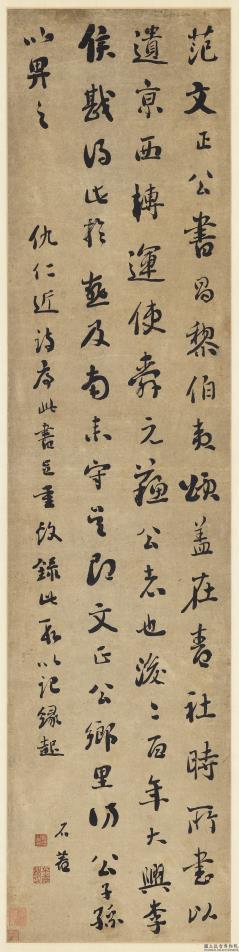 范文正公書昌黎伯夷頌蓋在青社時所書以
遺京西轉運使舜元蘇公者也後二百年大興李
侯戡得此於燕及南來守吳即文正公鄉里訪公子孫
以畀之
仇仁近詩序此書重故錄此段以記緣起
石菴